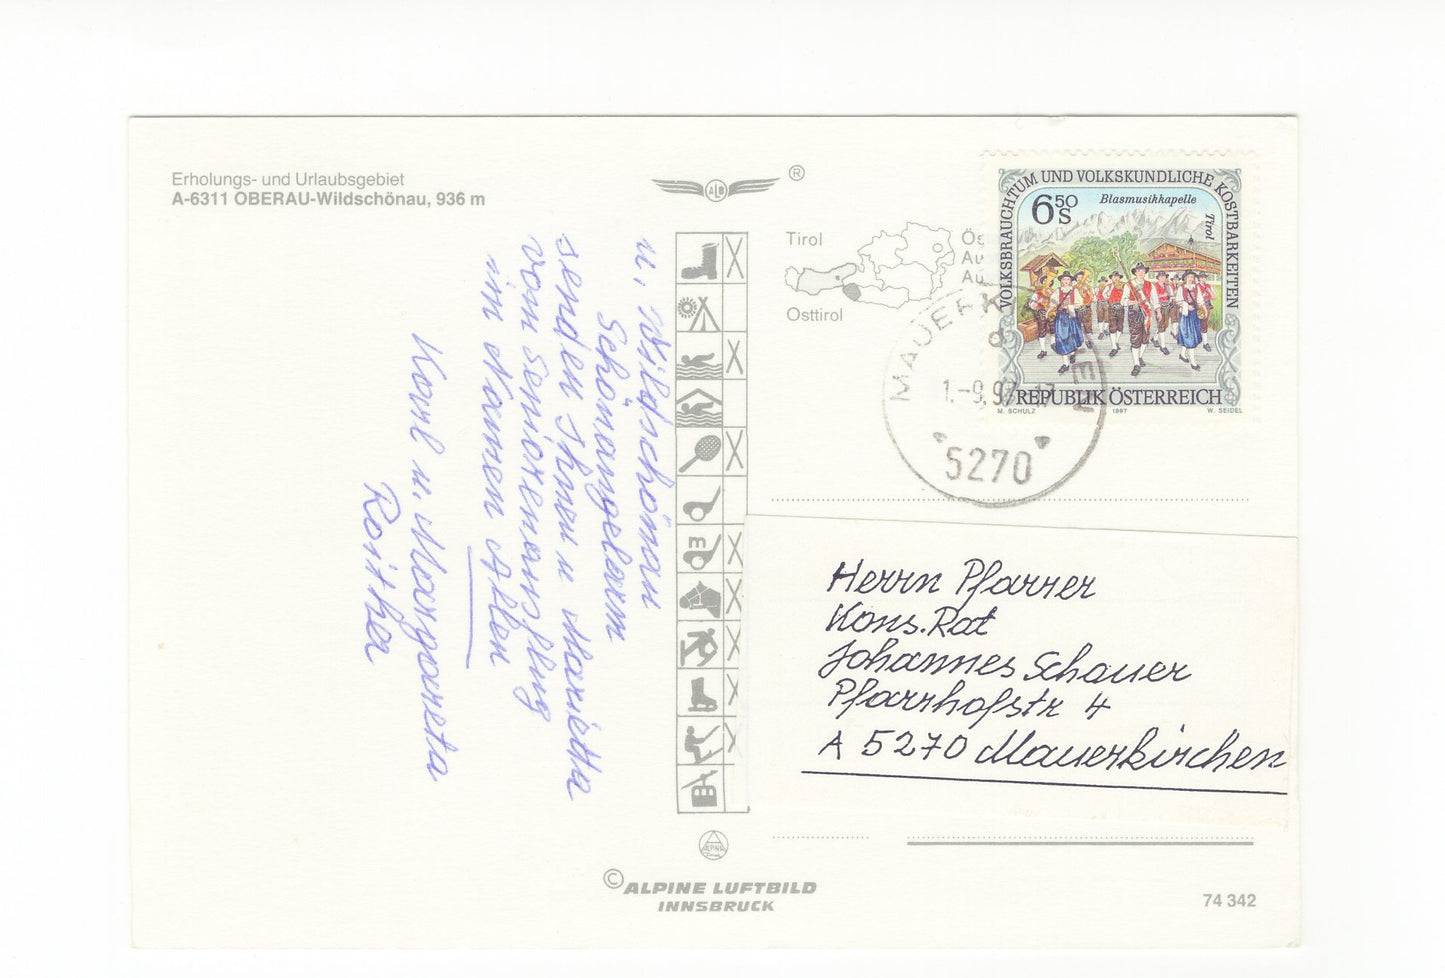 Erholungs- und Urlaubsgebiet
A-6311 OBERAU-Wildschönau, 936 m
ALB
®
Tirol
Osttirol
Ös
Au
Au
VOLKSBRAUCHTUM UND VOLKSKUNDLICHE KOSTBARKEITEN
6 50 S
Blasmusikkapelle
Tirol
REPUBLIK ÖSTERREICH
M. SCHULZ
1997
W. SEIDEL
MAUERK EN
d
1.-9.97-17
5270
u. Wildschönau
Schönangelarm
senden Ihnen u Marietta
vom Seniorenausflug
im Namen Allen
Karl u. Margareta
Roither
m
Herrn Pfarrer
Kons.Rat
Johannes Schauer
Pfarrhofstr 4
A 5270 Mauerkirchen
ALPINA
© ALPINE LUFTBILD
INNSBRUCK
74 342